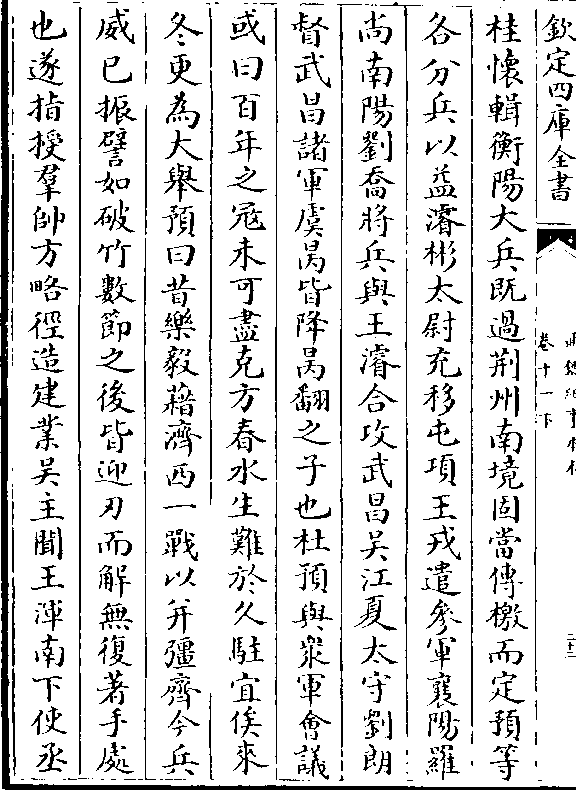 欽定四庫全書
卷十一下
桂懷輯衡陽大兵既過荆州南境固當傳檄而定預等
各分兵以益濬彬太尉充移屯項王戎遣參軍襄陽羅
尚南陽劉喬將兵與王濬合攻武昌吳江夏太守劉朗
督武昌諸軍虞昺皆降昺翻之子也杜預與衆軍會議
或曰百年之冦未可盡克方春水生難於久駐宜俟來
冬更為大舉預曰昔樂毅藉濟西一戰以并彊齊今兵
威已振譬如破竹數節之後皆迎刃而解無復著手處
也遂指授羣帥方略徑造建業吳主聞王渾南下使丞